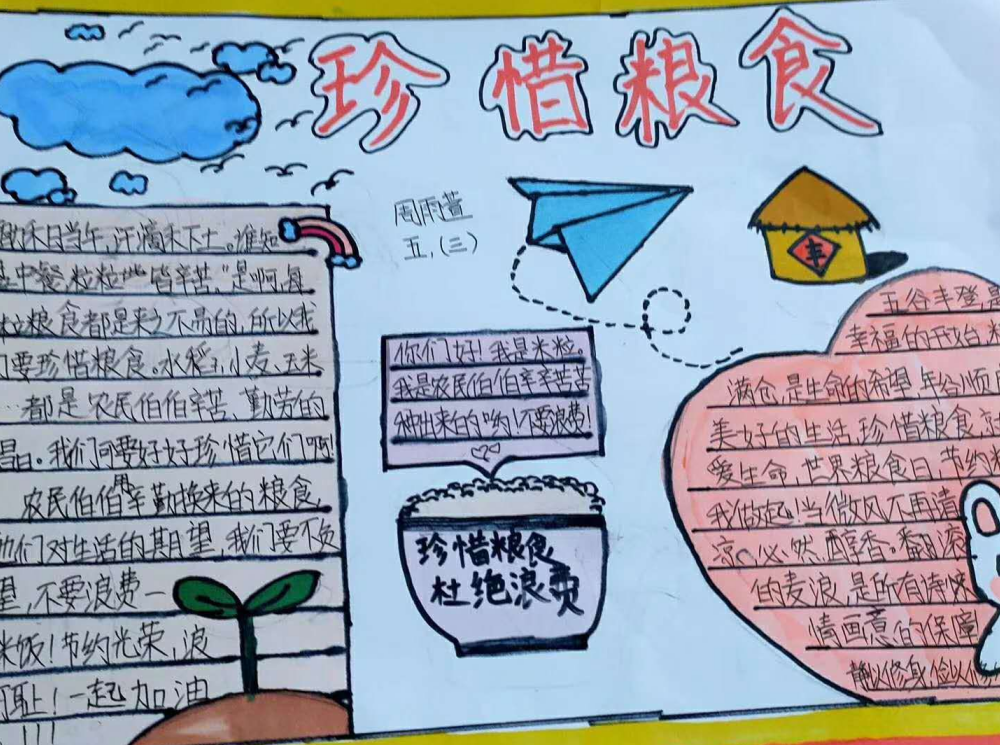 珍惜粮食
周雨萱
五,(三)
丰
禾日当午,汗滴禾下土。谁知
中餐,粒粒皆辛苦,"是啊,每
粒粮食都是来之不易的,所以我
们要珍惜粮食。水稻、小麦、玉米
都是农民伯伯辛苦、勤劳的
我们可要好好珍惜它们啊!
农民伯伯用辛勤换来的粮食,
他们对生活的期望,我们要不负
望,不要浪费一
米饭!节约光荣,浪
可耻!一起加油
!!!
你们好!我是米粒,
我是农民伯伯辛辛苦苦
种出来的哟!不要浪费!
珍惜粮食
杜绝浪费
五谷丰登,是
幸福的开始,粮
满仓,是生命的希望,年谷顺
美好的生活,珍惜粮食,
爱生命,世界粮食日,节约粮
我做起!当微风不再清
凉,必然醇香。翻滚
的麦浪,是所有诗
情画意的保障
静以修身,俭以